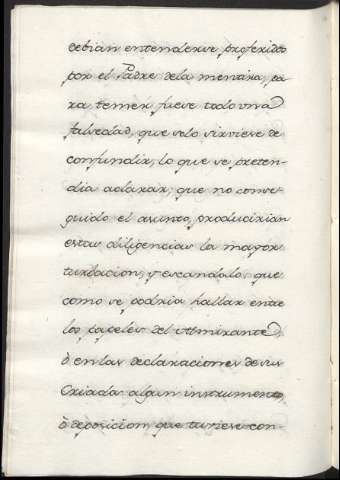 debian entenderse, proferidos
por el Padre dela mentira, pa
ra temer fuese todo una
falsedad, que solo sirviese de
confundir, lo que se preten-
dia aclarar; que no conse-
guido el asunto, producirian
estas diligencias la mayor
turbacion, y escandalo: que
como se podria hallar entre
los papeles del Almirante,
ò en las declaraciones de sus
Criados algun instrumento,
ò deposicion, que tuviese con-